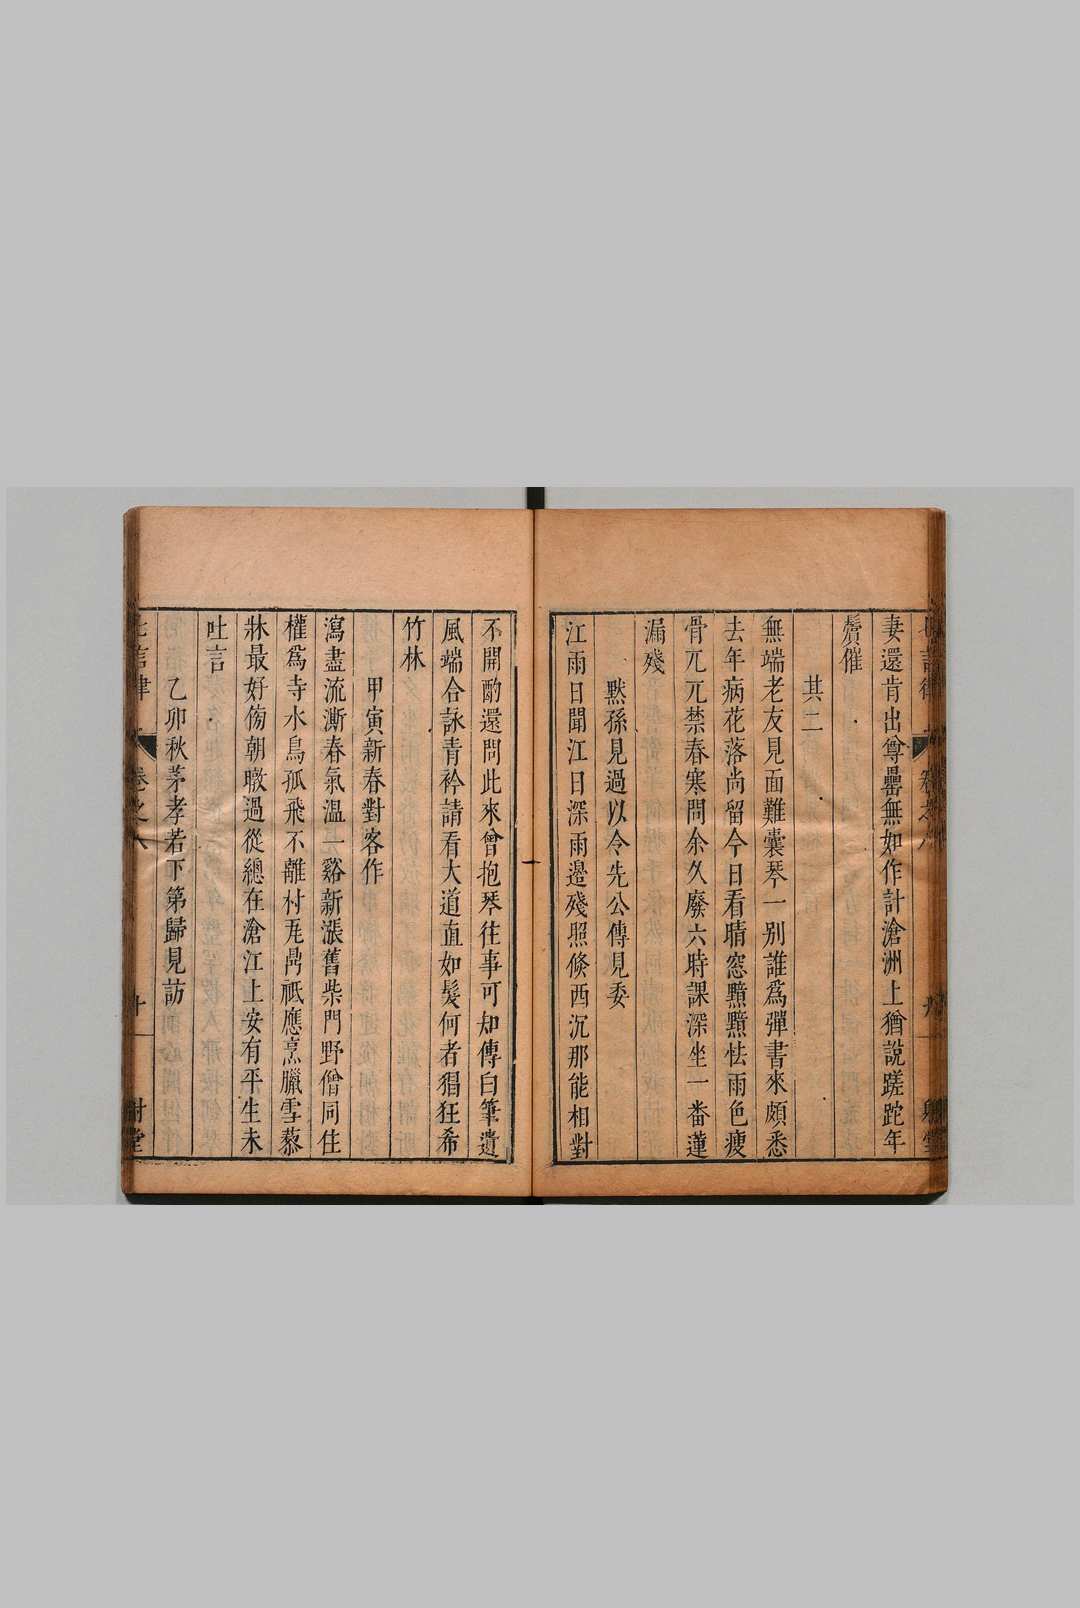 妻還肯出尊罍無如作計滄洲上猶說蹉跎年
鬢催
其二
無端老友見面難囊琴一別誰為彈書來頗悉
去年病花落尚留今日看晴窓黯黯怯雨色瘦
骨兀兀禁春寒問余久廢六時課深坐一番蓮
漏殘
默孫見過以令先公傳見委
江雨日聞江日深雨邊殘照倐西沉那能相對
不開酌還問此來曾抱琴往事可知傳白筆遺
風端合詠青衿請看大道直如髮何者猖狂希
竹林
甲寅新春對客作
瀉盡流澌春氣溫一谿新漲舊柴門野僧同住
權為寺水鳥孤飛不離村瓦鼎祇應烹臘雪藜
牀最好傍朝暾過從總在滄江上安有平生未
吐言
乙卯秋茅孝若下第歸見訪
七言律
卷之八
十